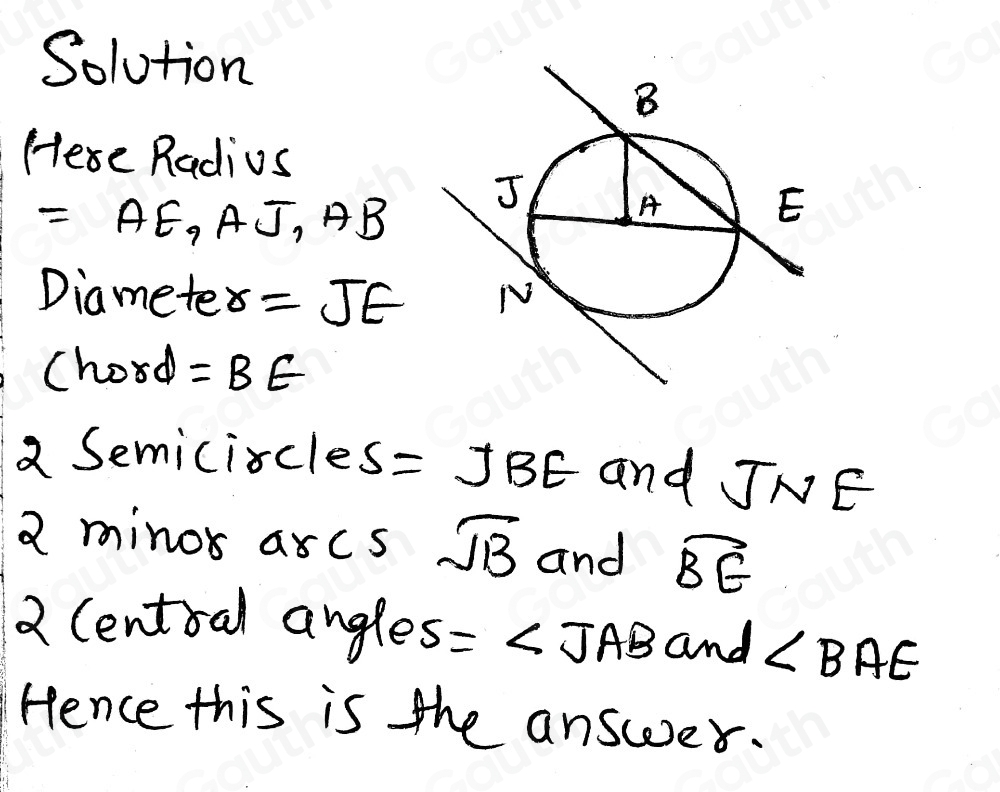 Solution
Here Radius
= AE, AJ, AB
Diameter = JE
Chord = BE
2 Semicircles = JBE and JNE
2 minor arcs JB and BE
2 Central angles = <JAB and <BAE
Hence this is the answer.
B
J
A
E
N
Gauth